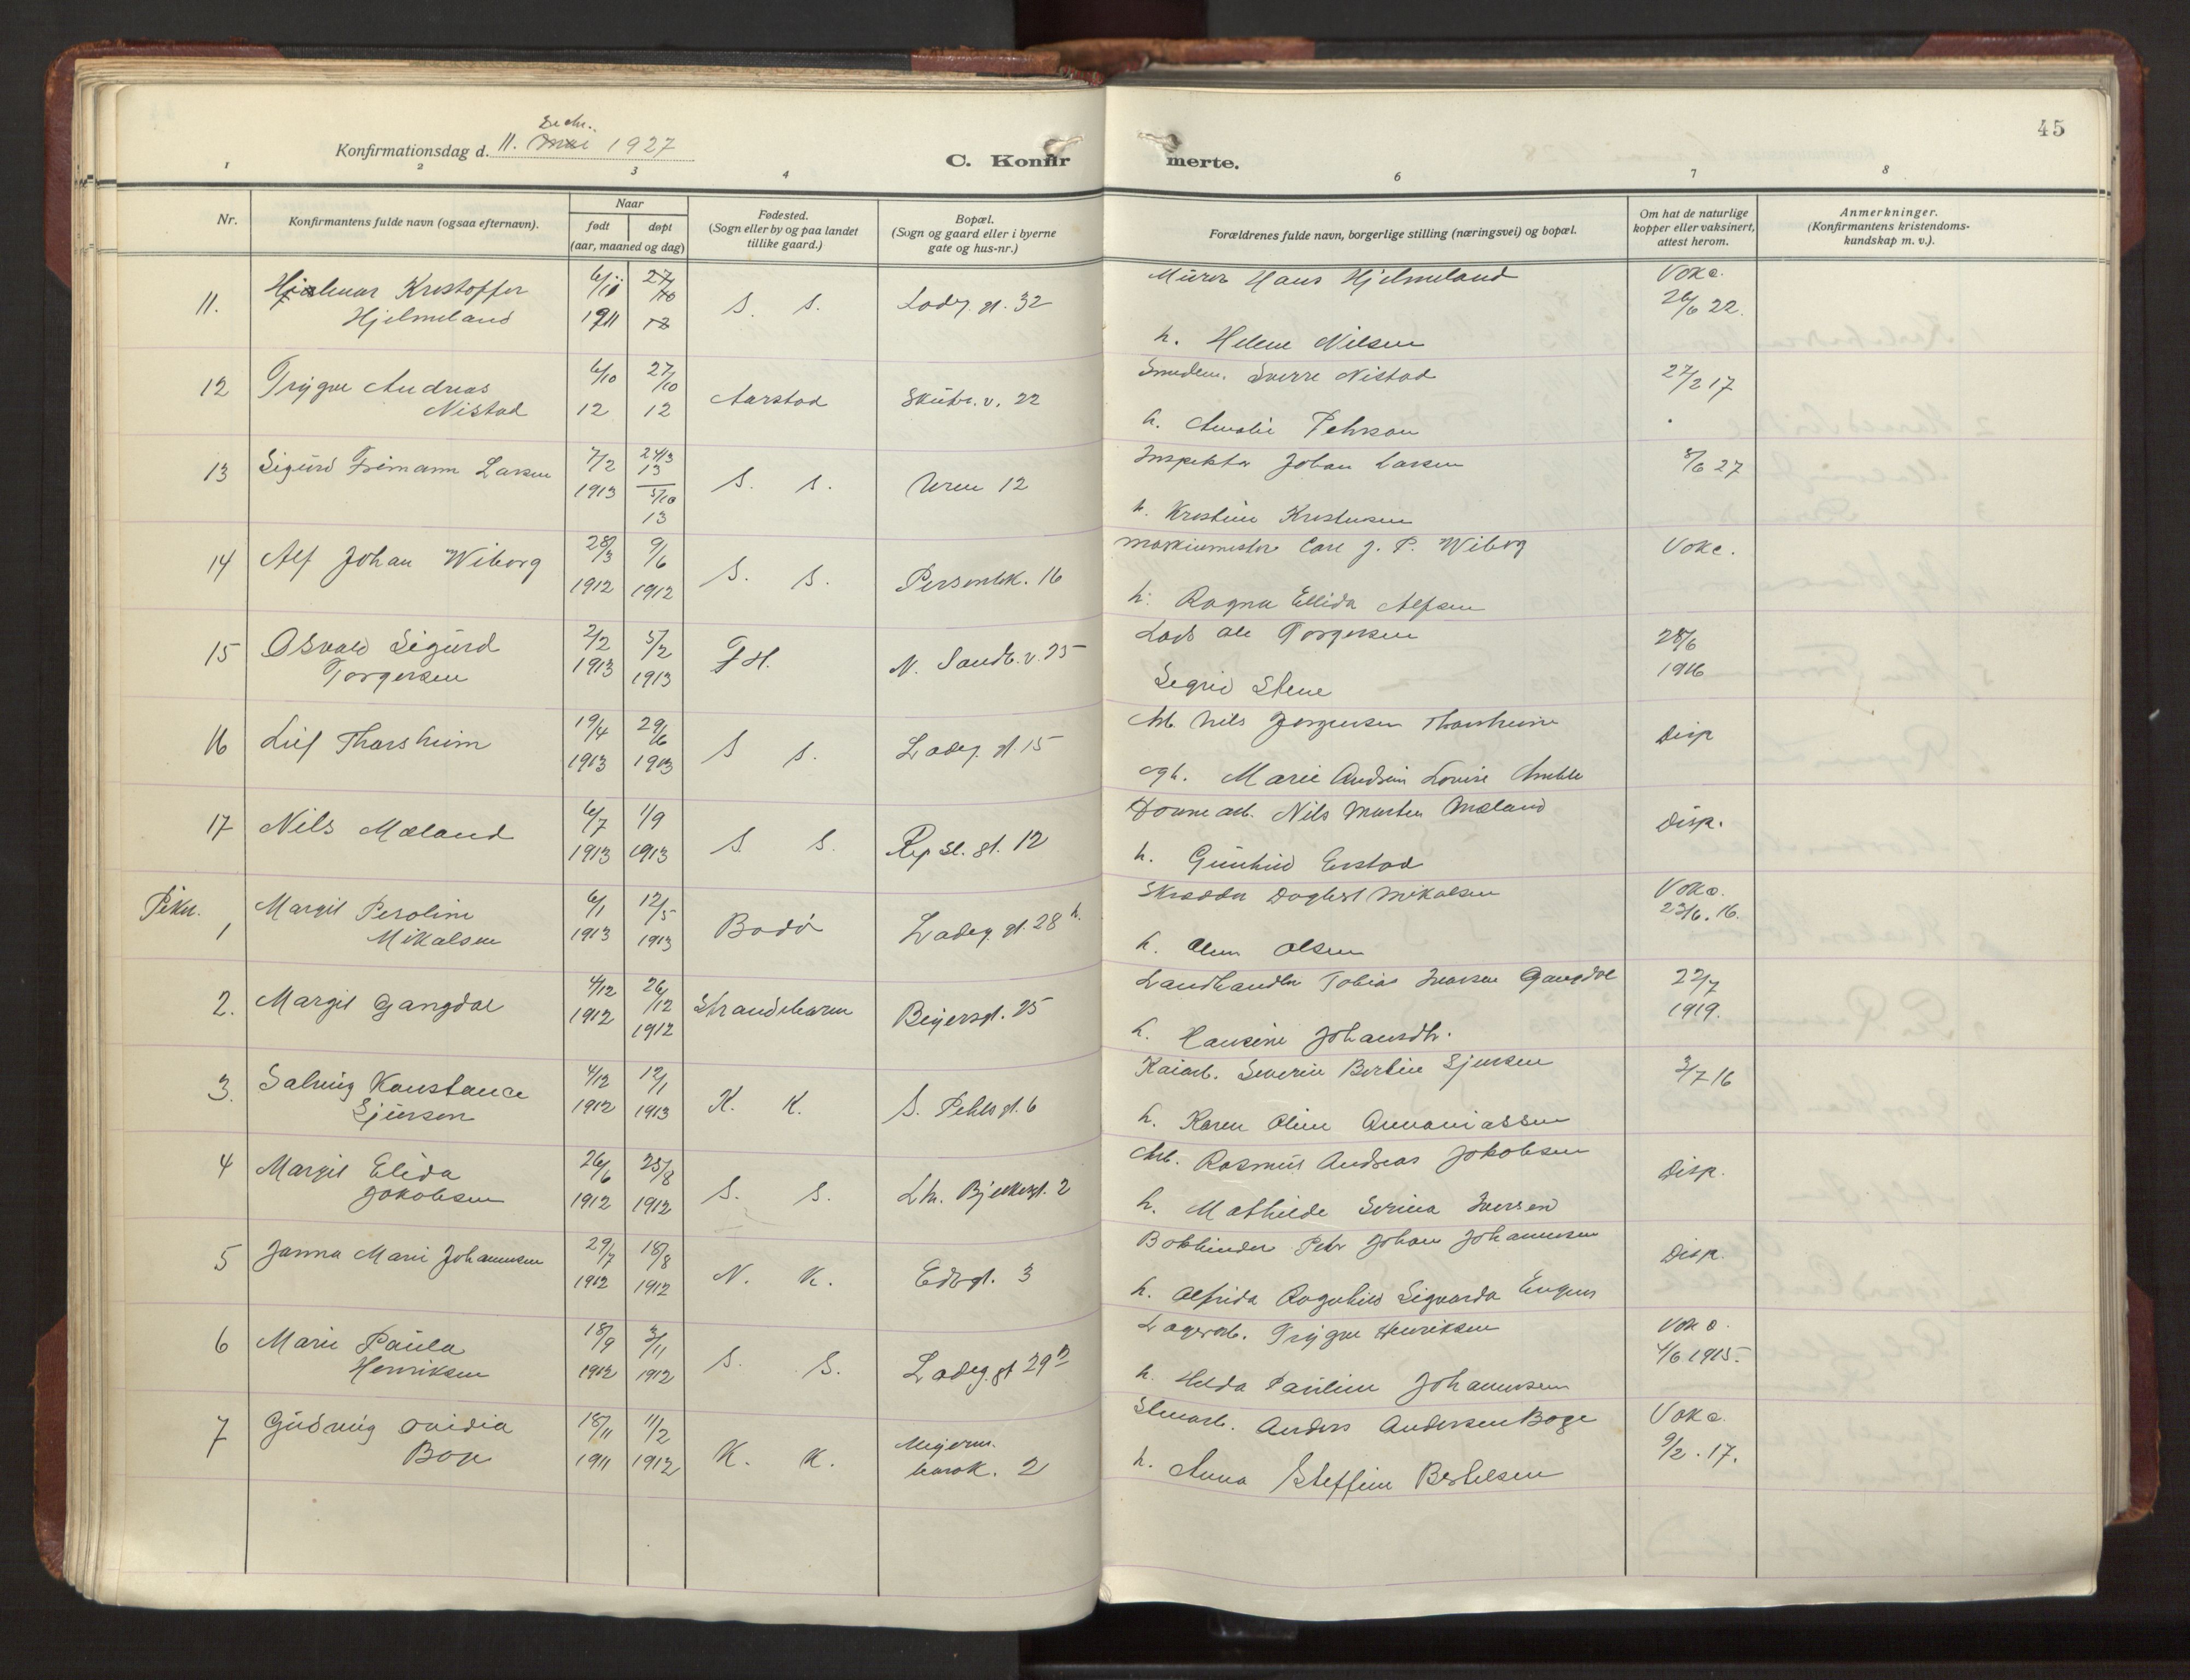 45
Konfirmationsdag d. 11. Decbr. mai 1927
C. Konfir merte.
1 2 3 4 6 7 8
Nr.
Konfirmantens fulde navn (ogsaa efternavn).
Naar
født døpt
(aar, maaned og dag)
Fødested.
(Sogn eller by og paa landet
tillike gaard.)
Bopæl.
(Sogn og gaard eller i byerne
gate og hus-nr.)
Forældrenes fulde navn, borgerlige stilling (næringsvei) og bopæl.
Om hat de naturlige
kopper eller vaksinert,
attest herom.
Anmerkninger.
(Konfirmantens kristendoms-
kundskap m. v.).
11. Hjalmar Kristoffer Hjelmeland 1911 S. S. Ladeg. gt. 32 Murer Hans Hjelmeland Vokc. 26/6 22.
h. Helene Nilsen
12 Trygve Andreas Nistad 6/10 12 27/10 12 Aarstad Skutv. v. 22 Smedem. Sverre Nistad 27/2 17
h. Amalie Pehrson
13 Sigurd Frimann Larsen 7/2 1913 24/3 13 5/10 13 S. S. Uren 12 Inspektør Johan Larsen 8/6 27
h. Kristine Kristensen
14 Alf Johan Wiborg 28/3 1912 9/6 1912 S. S. Persenbk. 16 Maskinmester Carl J. P. Wiborg Vokc.
h. Ragna Ellida Alfsen
15 Osvald Sigurd Torgersen 2/2 1913 5/2 1913 F H. N. Sandv. v. 25 Lods Ole Torgersen 28/6 1916
Segrid Stene
16 Leif Tharsheim 19/4 1913 29/6 1913 S S. Ladeg. gt. 15 Arb. Nils Jørgensen Tharsheim Disp
og h. Marie Andrea Lovise Amble
17 Nils Mæland 6/7 1913 1/9 1913 S. S. Rep sl. gt. 12 Nils Marten Mæland Disp.
h. Gunhild Erstad
Piker.
1 Margit Peroline Mikalsen 6/1 1913 12/5 1913 Bodø Ladeg. gt. 28 h. Skrædder Dagbert Mikalsen Vokc. 23/6. 16.
h. Olsen
2. Margit Gangdal 4/12 1912 26/12 1912 Strandebarm Beyersgt. 25 Landhandler Tobias Ivarsen Gangdal 22/7 1919.
h. Hansine Johansdtr.
3. Solveig Konstance Sjursen 4/12 1912 12/1 1913 K. K. S. Petersgt. 6 Kaiarb. Severin Bertin Sjursen 3/7 16
h. Karen Oline Annaniassen
4 Margit Elida Jakobsen 26/6 1912 25/8 1912 S. S. Lh. Bjerkegt. 2 Arb. Rasmus Andreas Jakobsen Disp.
h. Mathilde Serina Iversen
5 Janna Marie Johannesen 29/7 1912 18/8 1912 N. K. Edv. gt. 3 Bokbinder Peder Johan Johannesen Disp.
h. Alfrida Ragnhild Sigvarda
6 Marie Paula Henriksen 18/9 1912 3/11 1912 S. S. Ladeg. gt 29 Lagerarb. Trygve Henriksen 4/6 1915.
h. Hilda Pauline Johannesen
7 Gudveig Ovidia Boge 18/11 1911 11/2 1912 K. K. Meyerm. barak. 2 Stenarb. Anders Andersen Boge Vokc. 9/2. 17.
h. Anna Steffine Bertelsen